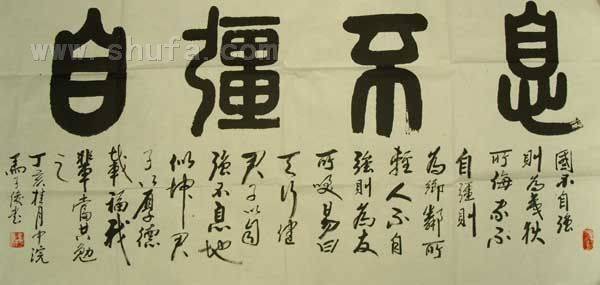 www.shufa.com
自彊不息
國不自強
則為狄
所侮家不
自彊則
為鄉鄰所
輕人不自
強則為友
所易曰
天行健
君子以自
強不息地
似坤君
子以厚德
載福我
輩當共勉
之
丁亥桂月中浣
馬子書